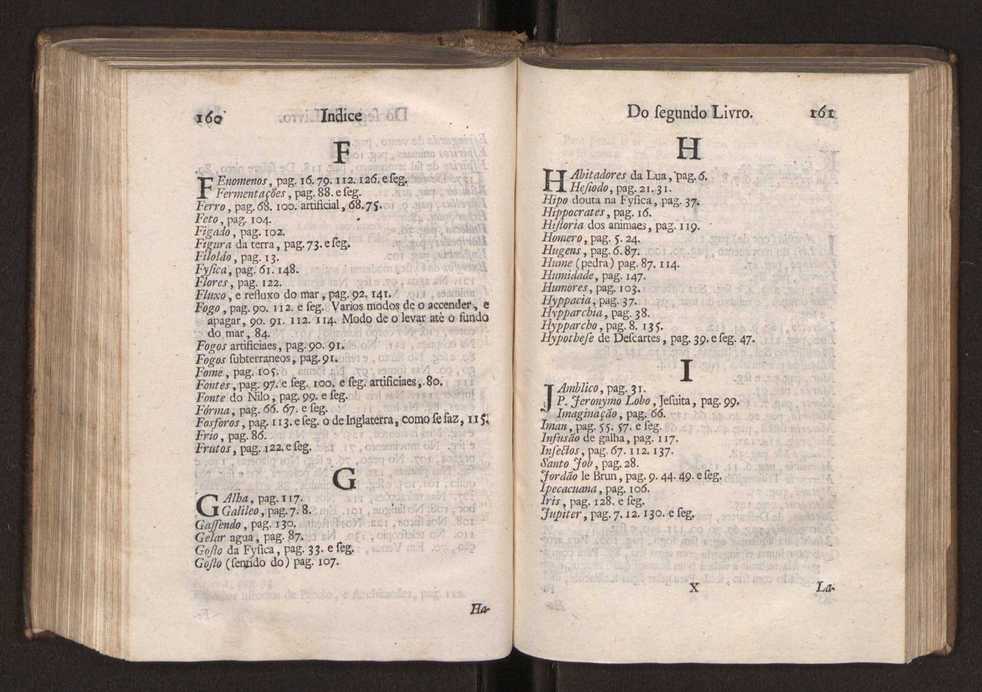 160 Indice
F
FEnomenos, pag. 16. 79. 112. 126. e ſeg.
Fermentações, pag. 88. e ſeg.
Ferro, pag. 68. 100. artificial, 68. 75.
Feto, pag. 104.
Figado, pag. 102.
Figura da terra, pag. 73. e ſeg.
Filoláo, pag. 13.
Fyſica, pag. 61. 148.
Flores, pag. 122.
Fluxo, e refluxo do mar, pag. 92, 141.
Fogo, pag. 90. 112. e ſeg. Varios modos de o accender, e
apagar, 90. 91. 112. 114. Modo de o levar atè o fundo
do mar, 84.
Fogos artificiaes, pag. 90. 91.
Fogos ſubterraneos, pag. 91.
Fome, pag. 105.
Fontes, pag. 97. e ſeg. 100. e ſeg. artificiaes, 80.
Fonte do Nilo, pag. 99. e ſeg.
Fórma, pag. 66. 67. e ſeg.
Fosforos, pag. 113. e ſeg. o de Inglaterra, como ſe faz, 115.
Frio, pag. 86.
Frutos, pag. 122. e ſeg.
G
GAlha, pag. 117.
Galileo, pag. 7. 8.
Gaſſendo, pag. 130.
Gelar agua, pag. 87.
Goſto da Fyſica, pag. 33. e ſeg.
Goſto (sentido do) pag. 107.
Ha-
Do ſegundo Livro. 161
H
HAbitadores da Lua, pag. 6.
Heſiodo, pag. 21. 31.
Hipo douta na Fyſica, pag. 37.
Hippocrates, pag. 16.
Hiſtoria dos animaes, pag. 119.
Homero, pag. 5. 24.
Hugens, pag. 6. 87.
Hume (pedra) pag. 87. 114.
Humidade, pag. 147.
Humores, pag. 103.
Hyppacia, pag. 37.
Hypparchia, pag. 38.
Hypparcho, pag. 8. 135.
Hypotheſe de Deſcartes, pag. 39. e ſeg. 47.
I
JAmblico, pag. 31.
P. Jeronymo Lobo, Jeſuita, pag. 99.
Imaginação, pag. 66.
Iman, pag. 55. 57. e ſeg.
Infuſão de galha, pag. 117.
Inſectos, pag. 67. 112. 137.
Santo Job, pag. 28.
Jordão le Brun, pag. 9. 44. 49. e ſeg.
Ipecacuana, pag. 106.
Iris, pag. 128. e ſeg.
Jupiter, pag. 7. 12. 130. e ſeg.
X La-